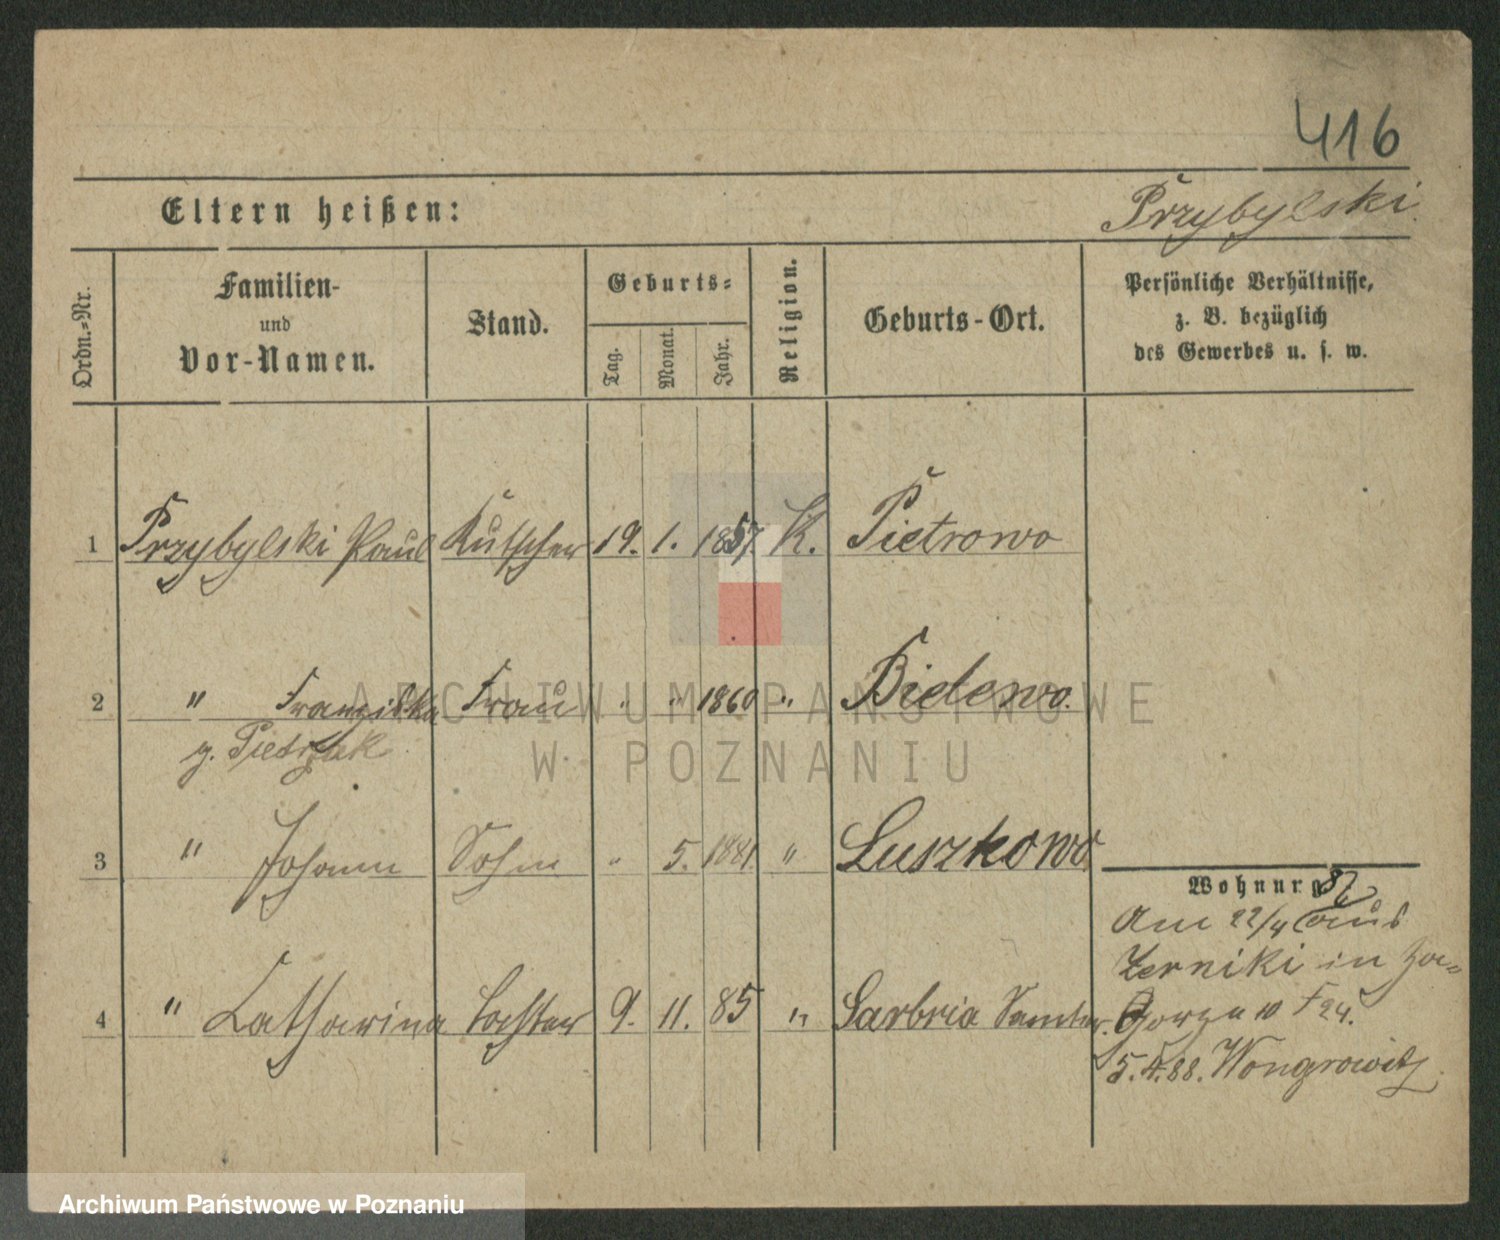 416
Eltern heißen: Przybylski
Ordn.-Nr. Familien- und Vor-Namen. Stand. Geburts- Tag. Monat. Jahr. Religion. Geburts-Ort. Persönliche Verhältnisse, z. B. bezüglich des Gewerbes u. s. w.
1 Przybylski Paul Kutscher 19. 1. 1857. K. Pietrowo
2 " Franziska Frau " " 1860 " Bielewo.
g. Pietrzak
3 " Johann Sohn " 5. 1881 " Luszkowo
4 " Catharina Tochter 9. 11. 85 " Sarbria Samter.
Wohnung
Am 22/4 aus
Zerniki in Za=
Gorze 10 F 24.
5.4.88. Wongrowitz
ARCHIWUM PAŃSTWOWE
W POZNANIU
Archiwum Państwowe w Poznaniu